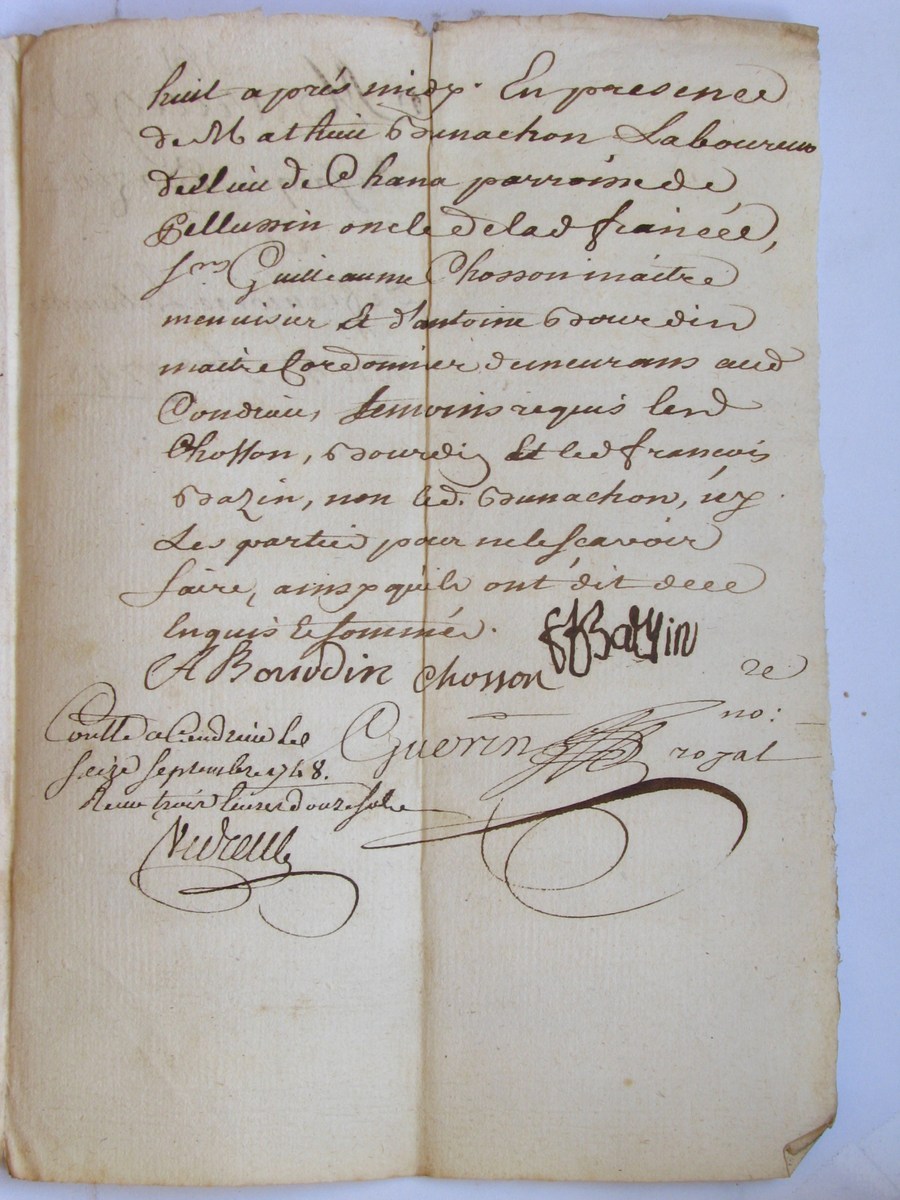 huit aprés midy. En presence
de Mathieu Bunachon Laboureur
du Lieu de Chana parroisse de
Pellussin oncle de lad fiancée,
sr Guilleaume Chosson maitre
menuisier Et d'antoine Bourdin
maitre Cordonnier demeurans aud
Condrieu, temoins requis lesd
Chosson, Bourdin Et led françois
Bazin, non led. Bunachon, ny
Les parties pour ne le scavoir
faire, ainsy qu'ils ont dit de ce
Enquis & sommés.
A Bourdin Chosson ff Bazin
Guerin no: re royal
Conttlé a Condrieu le
seize septembre 1748.
Receu trois livres douze sols